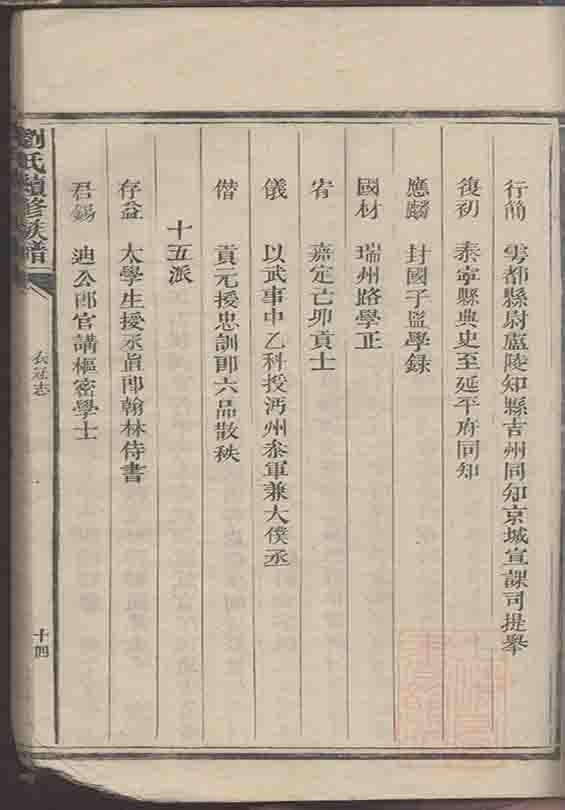 行簡 雩都縣尉盧陵知縣吉州同知京城宣課司提舉
復初 泰寧縣典史至延平府同知
應麟 封國子監學錄
國材 瑞州路學正
宥 嘉定亡卯貢士
儀 以武事中乙科授沔州叅軍兼大僕丞
偕 貢元授忠訓郎六品散秩
十五派
存益 太學生授丞直郎翰林侍書
君錫 迪公郎官講樞密學士
劉氏續修族譜
衣冠志
十四